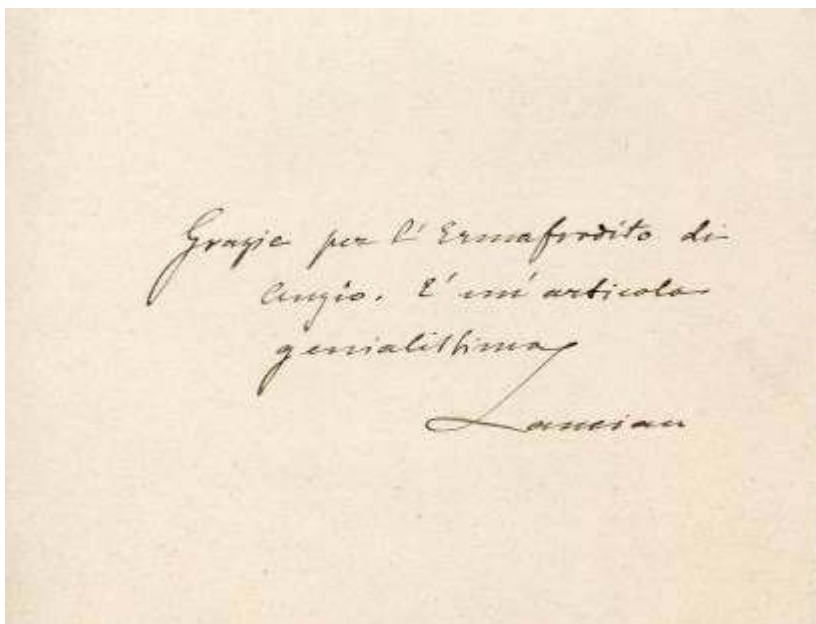 Grazie per l'Ermafrodito di
Anzio. E' un'articolo
genialissimo
Lanciani